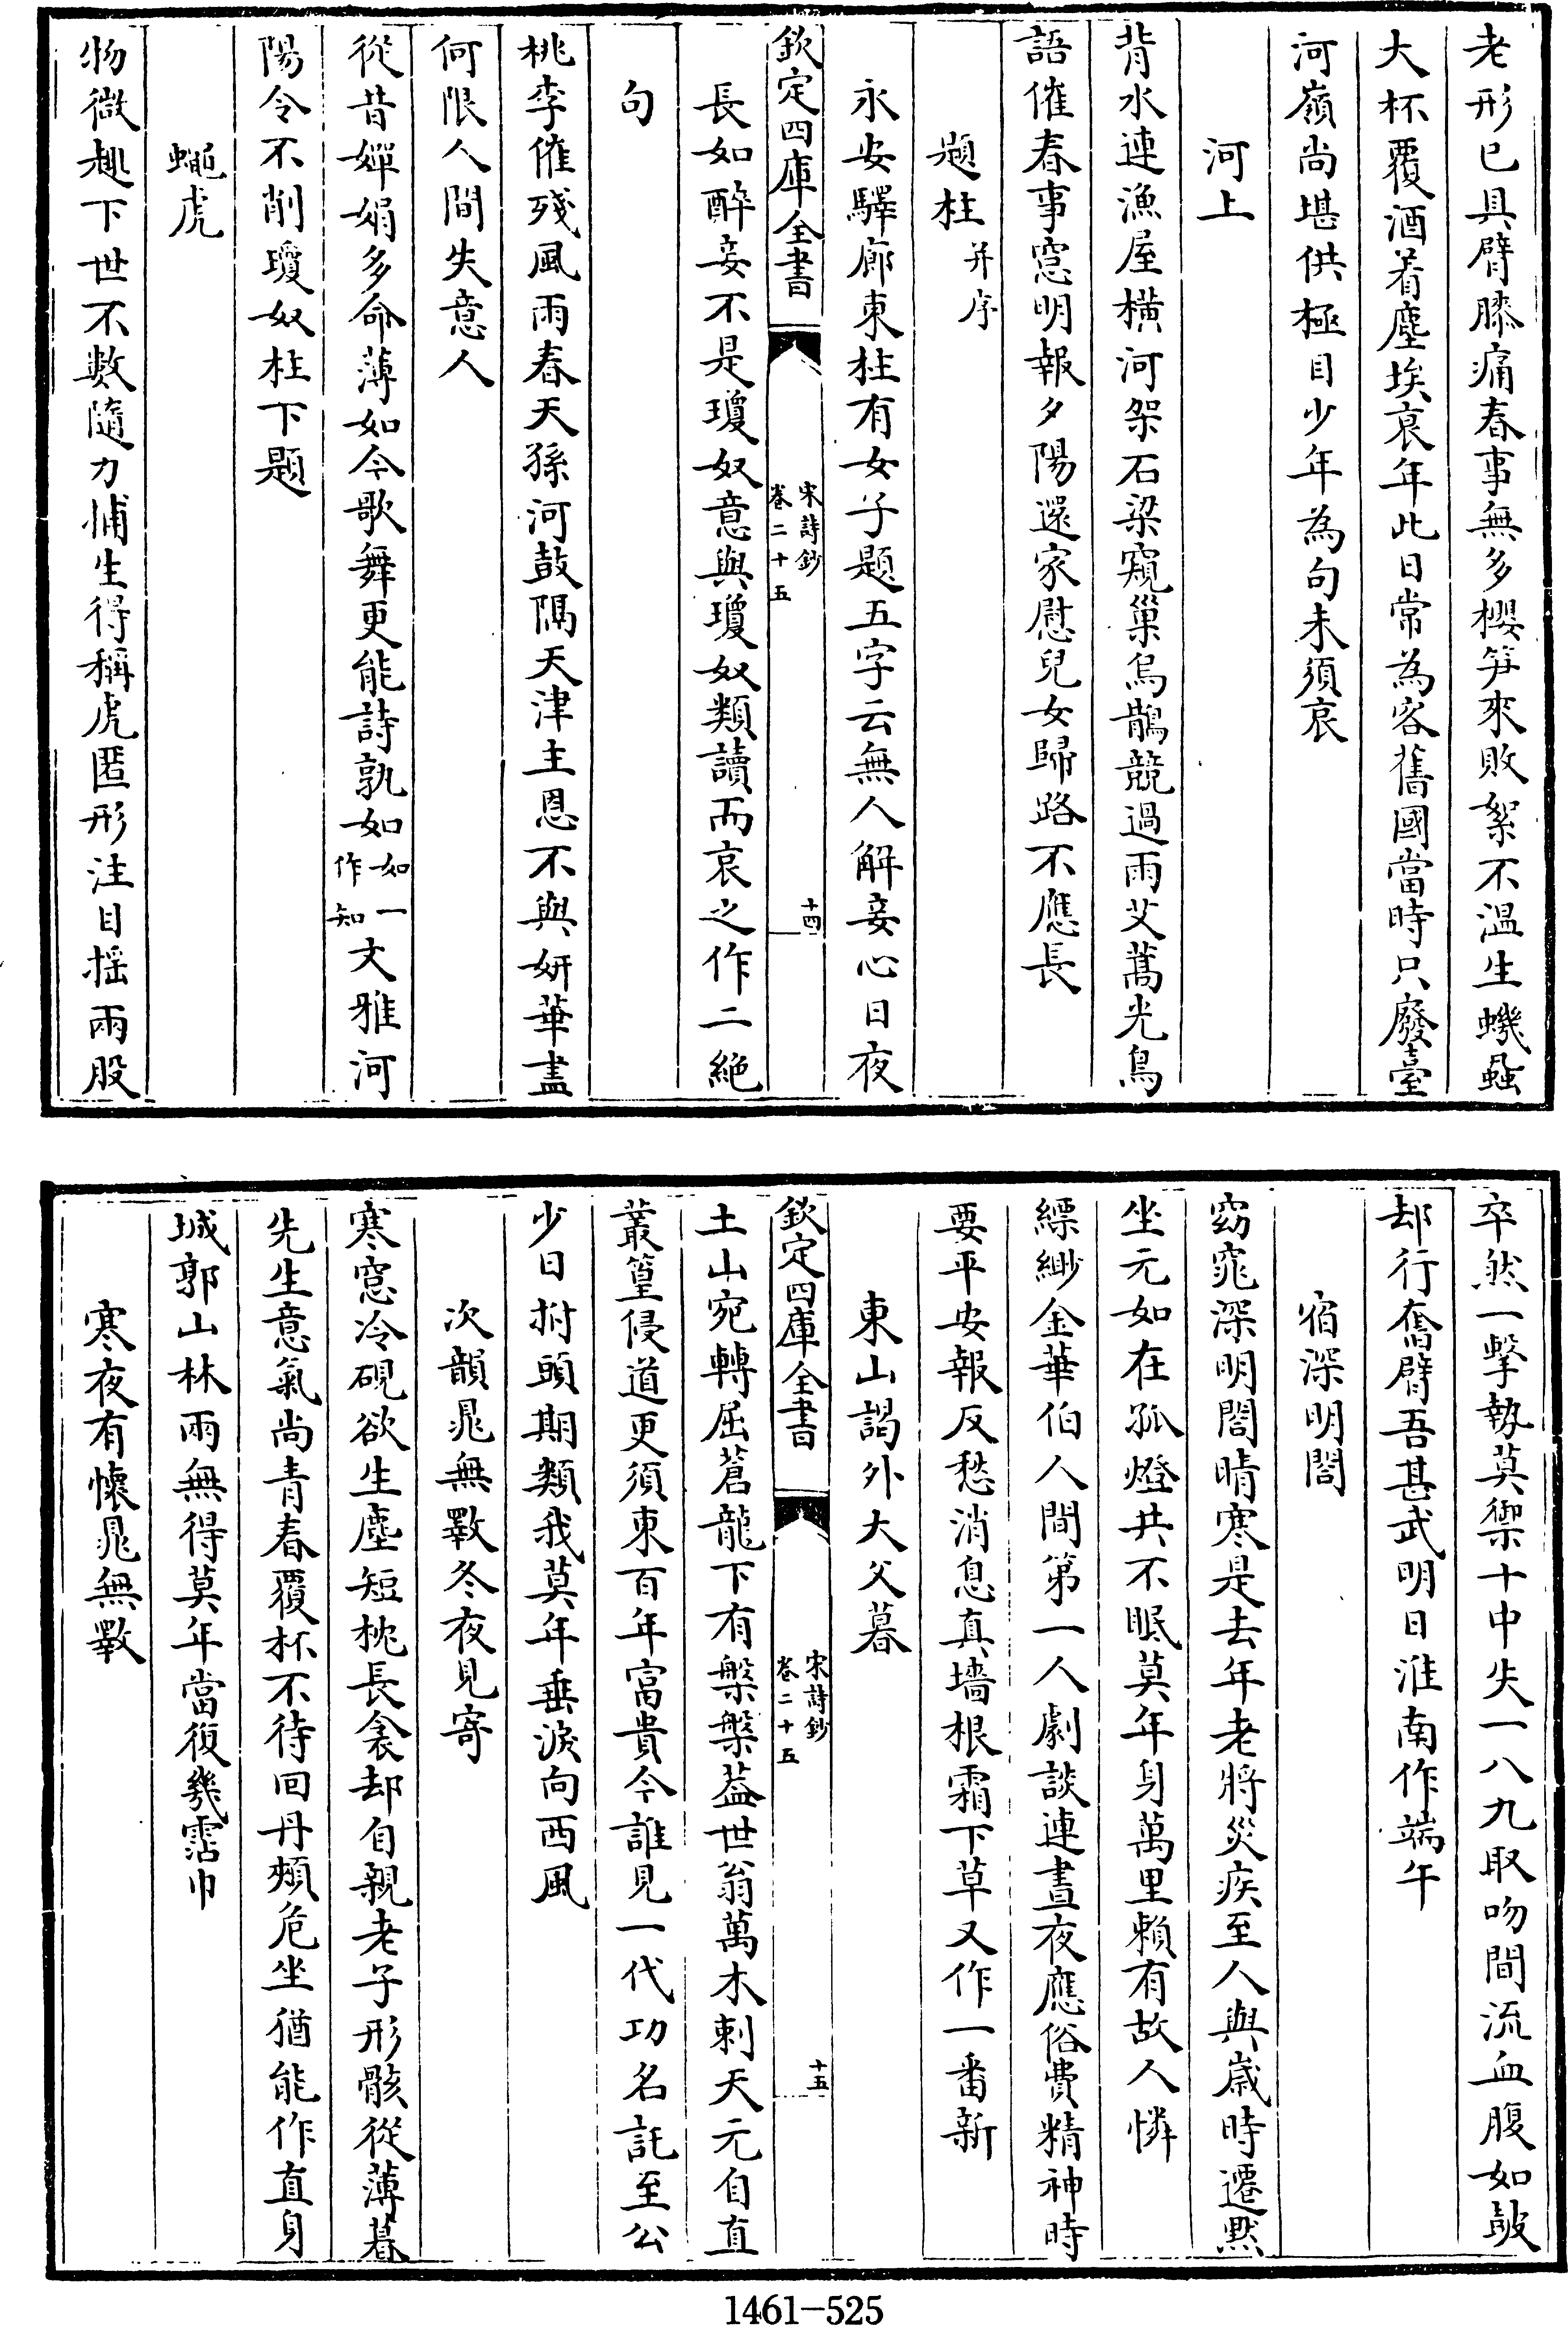 老形已具臂膝痛春事無多櫻笋來敗絮不温生蟣蝨
大杯覆酒着塵埃衰年此日常為客舊國當時只廢臺
河嶺尚堪供極目少年為句未須哀
河上
背水連漁屋横河架石梁窺巢烏鵲競過雨艾蒿光鳥
語催春事窓明報夕陽還家慰兒女歸路不應長
題柱并序
永安驛廊東柱有女子題五字云無人解妾心日夜
欽定四庫全書
宋詩鈔
卷二十五
十四
長如醉妾不是瓊奴意與瓊奴類讀而哀之作二絶
句
桃李催殘風雨春天孫河鼓隔天津主恩不與妍華盡
何限人間失意人
從昔嬋娟多命薄如今歌舞更能詩孰如如一作知文雅河
陽令不削瓊奴柱下題
蠅虎
物微趣下世不數隨力捕生得稱虎匿形注目揺兩股
卒然一擊勢莫禦十中失一八九取吻間流血腹如皷
却行奮臂吾甚武明日淮南作端午
宿深明閣
窈窕深明閣晴寒是去年老將災疾至人與歳時遷黙
坐元如在孤燈共不眠莫年身萬里頼有故人憐
縹緲金華伯人間第一人劇談連晝夜應俗費精神時
要平安報反愁消息真墻根霜下草又作一番新
東山謁外大父墓
欽定四庫全書
宋詩鈔
卷二十五
十五
土山宛轉屈蒼龍下有槃槃葢世翁萬木刺天元自直
叢篁侵道更須東百年富貴今誰見一代功名託至公
少日拊頭期類我莫年垂淚向西風
次韻晁無斁冬夜見寄
寒窓冷硯欲生塵短枕長衾却自親老子形骸從薄暮
先生意氣尚青春覆杯不待回丹頰危坐猶能作直身
城郭山林兩無得莫年當復幾霑巾
寒夜有懷晁無斁
1461-525